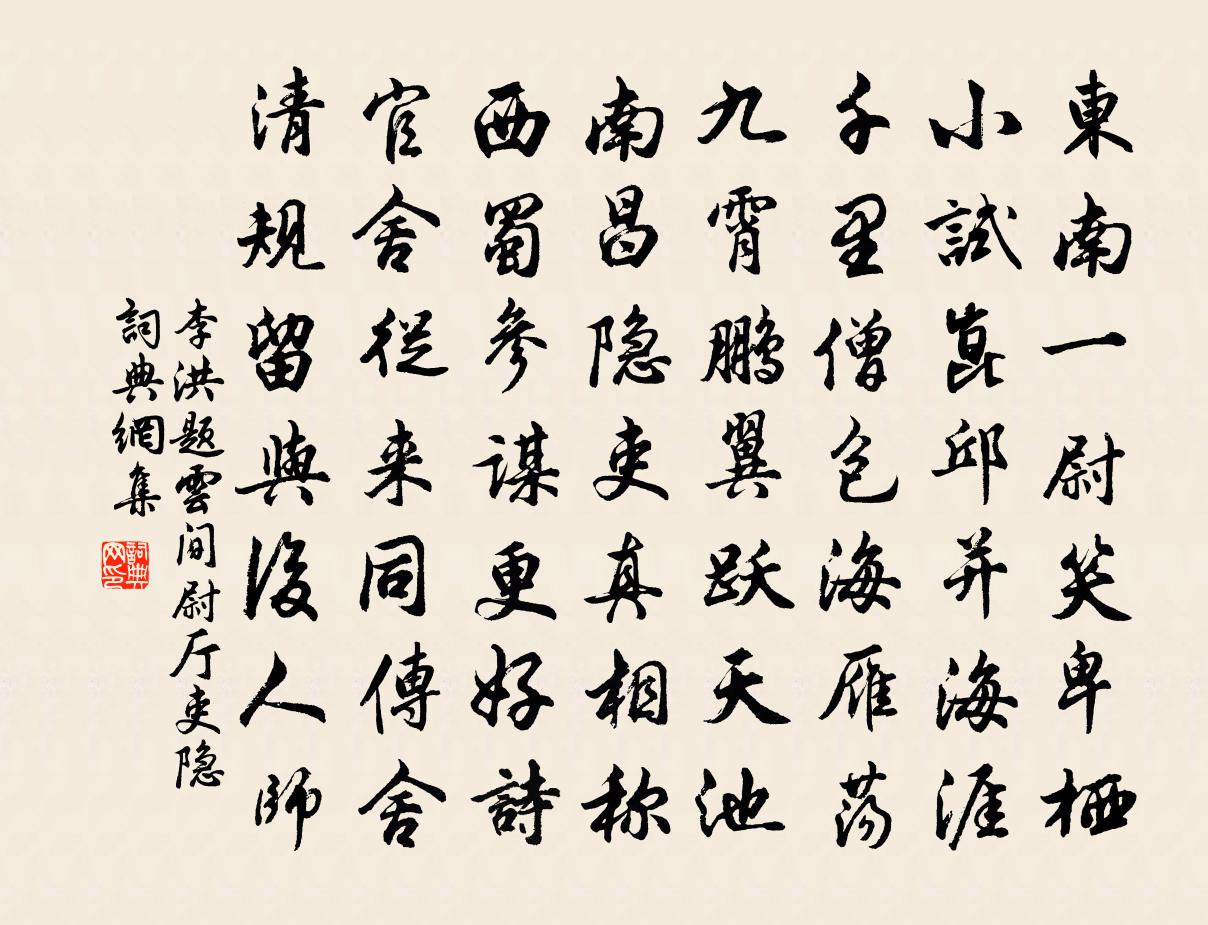 東南一尉笑卑栖
小試崑邱并海涯
千里僧包海雁蕩
九霄鵬翼跃天池
南昌隐吏真相称
西蜀參謀更好詩
官舍從来同傳舍
清規留與後人師
李洪题雲间尉厅吏隐
詞典網集
詞典网印